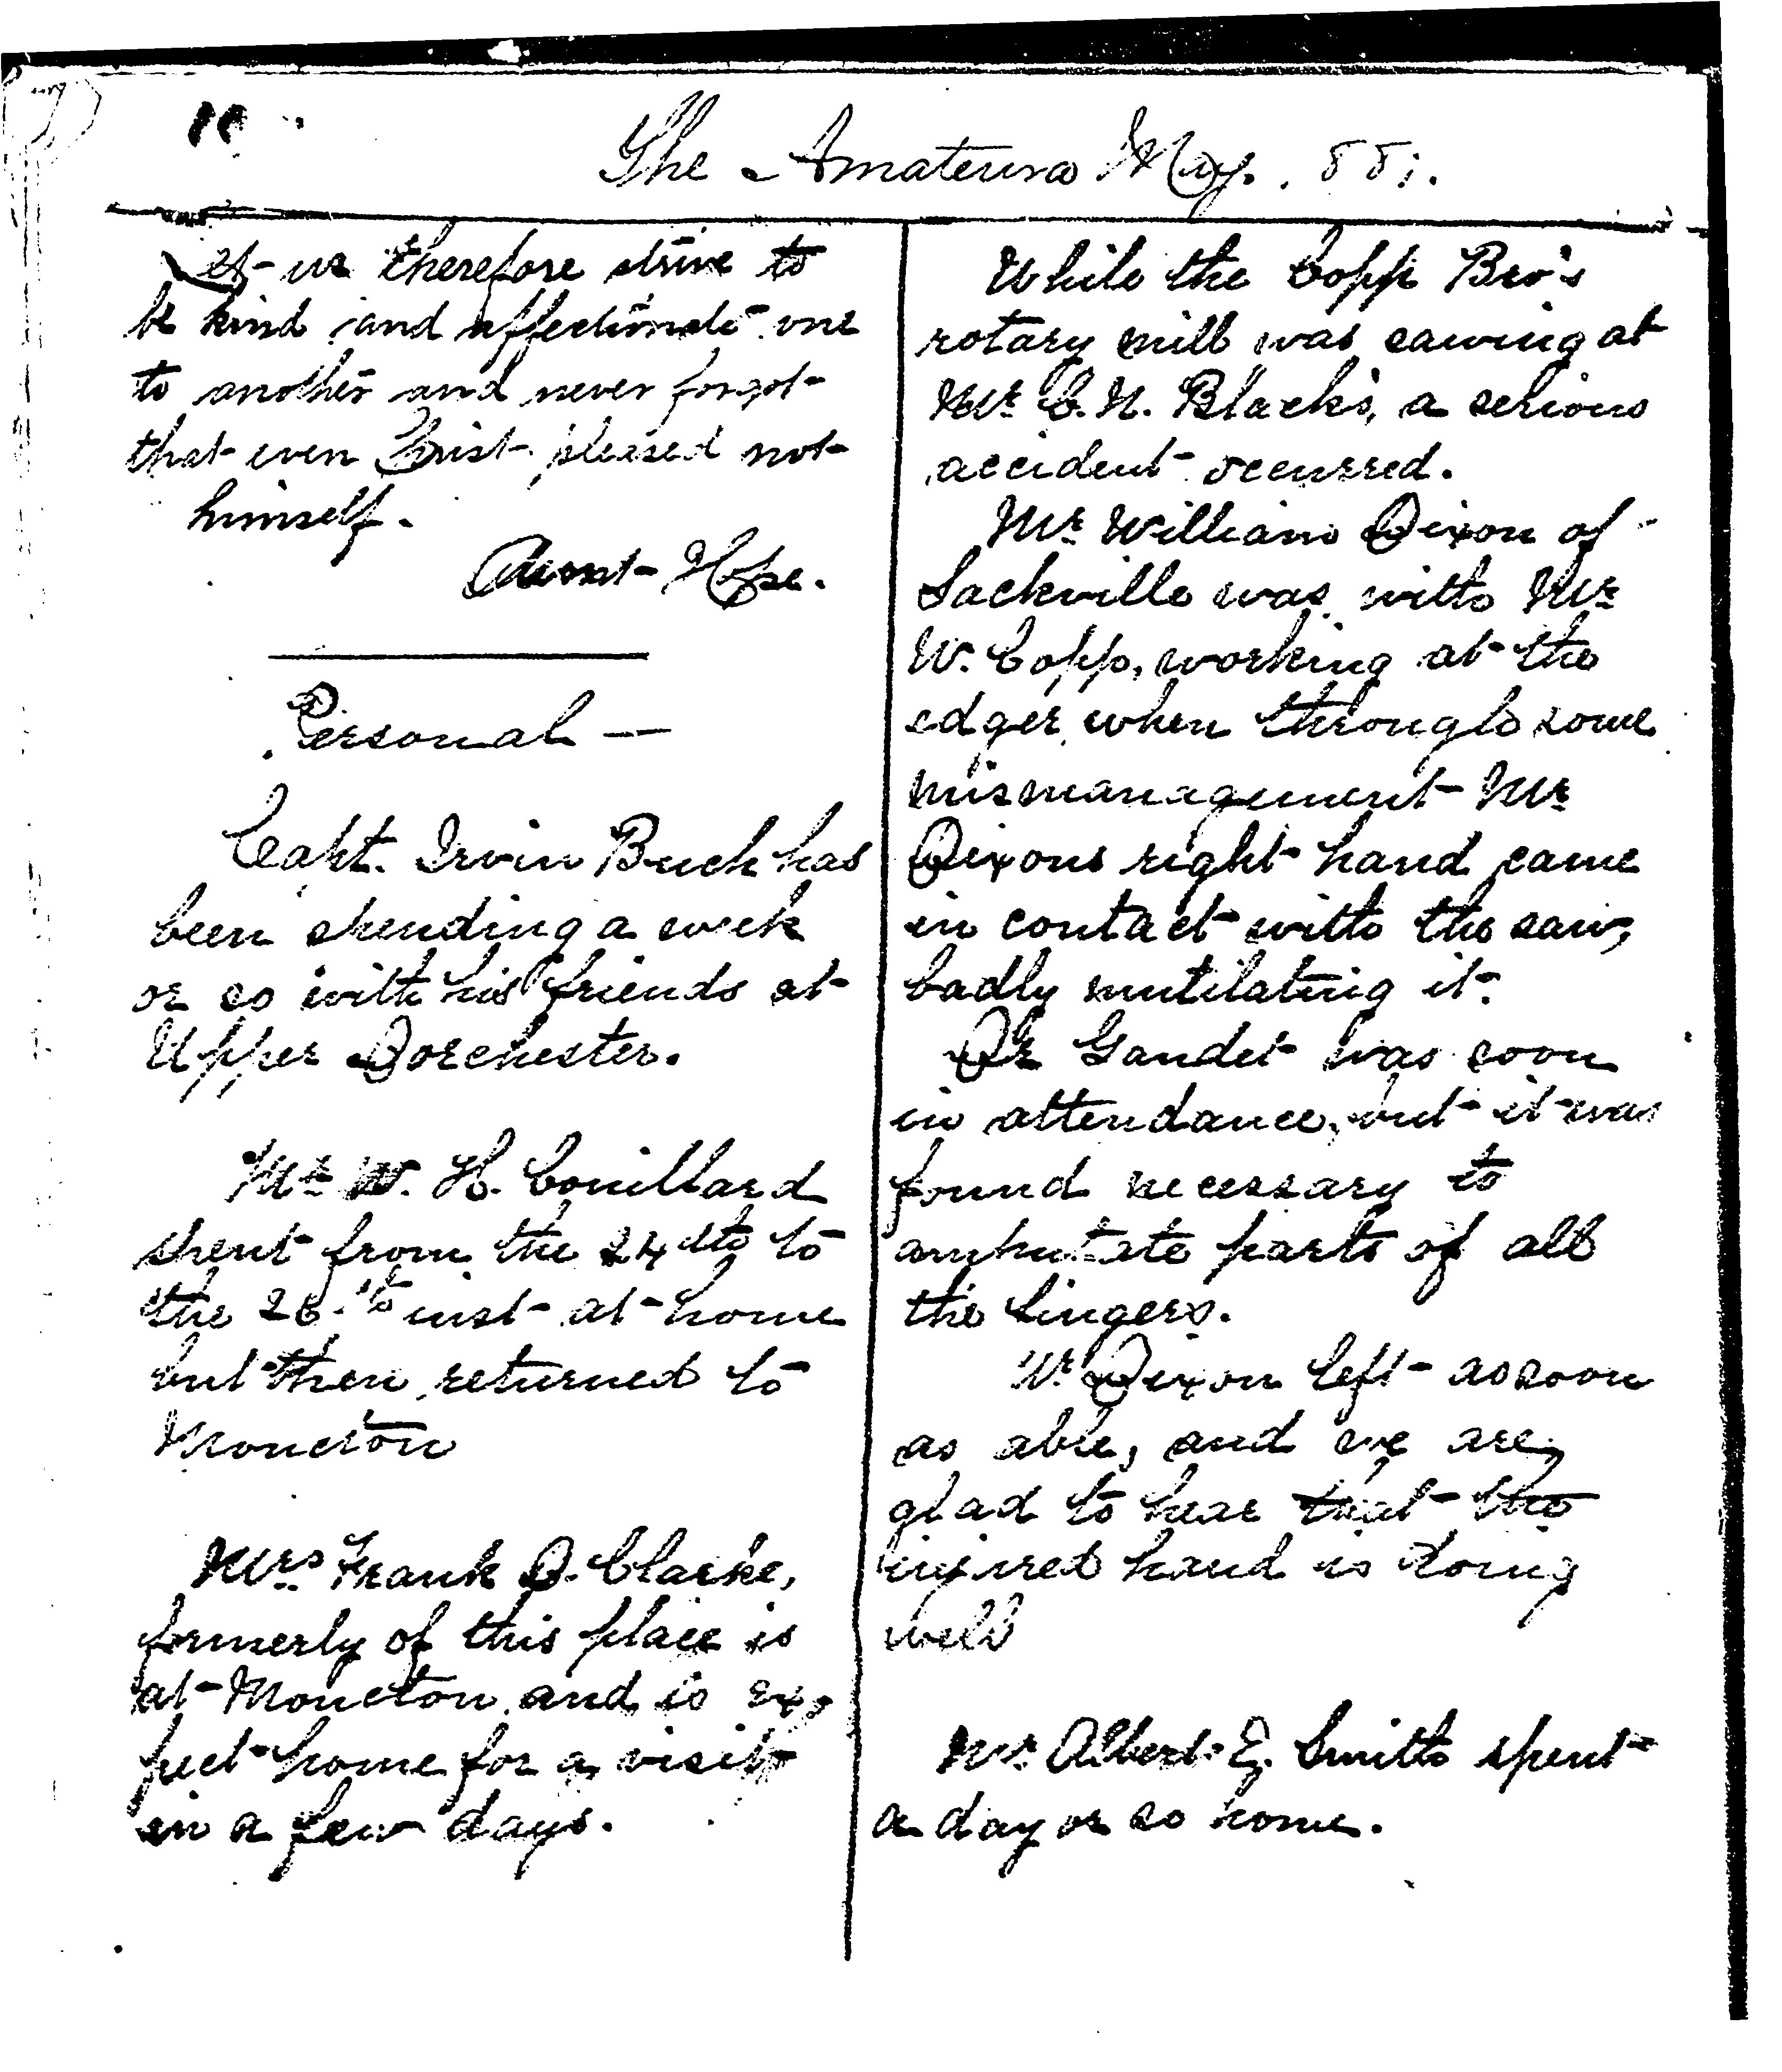 10
The Amateur May. 88.
Let us therefore strive to
be kind and affectionate one
to another and never forget
that even Christ pleased not
himself.
Aunt Hope.
Personal —
Capt. Irvin Buck has
been spending a week
or so with his friends at
Upper Dorchester.
Mr W. H. Couillard
spent from the 24th to
the 26th inst at home
but then returned to
Moncton
Mrs Frank D. Clarke,
formerly of this place is
at Moncton and is ex-
pect home for a visit
in a few days.
While the Copp Bro's
rotary mill was sawing at
Mr C. N. Black's, a serious
accident occurred.
Mr William Dixon of
Sackville was with Mr
W. Copp, working at the
edger, when through some
mismanagement Mr
Dixons right hand came
in contact with the saw,
badly mutilating it.
Dr Gaudet was soon
in attendance, but it was
found necessary to
amputate parts of all
the fingers.
Mr Dixon left as soon
as able, and we are
glad to hear that the
injured hand is doing
well
Mr Albert E. Smith spent
a day or so home.